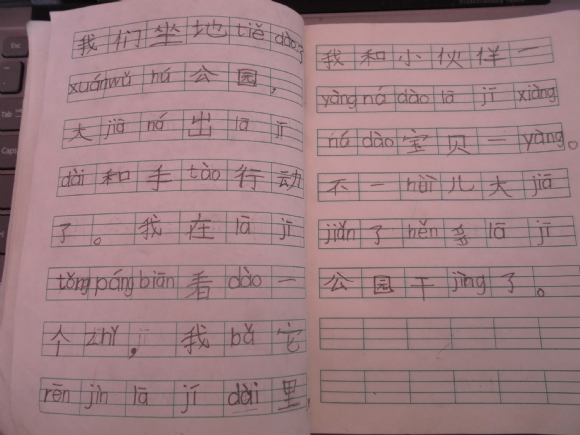 我们坐地tiě dào
xuánwǔ hú公园，
大jiā ná出lā jī
dài和手tào行动
了。我在lā jī
tǒng páng biān看dào一
个zhǐ，我bǎ它
rēn jìn lā jī dài里，
我和小伙伴一
yàng ná dào lā jī xiàng
ná dào宝贝一yàng。
不一huì儿大jiā
jiǎn了hěn多lā jī
公园干jìng了。
Esc
Tab
Caps